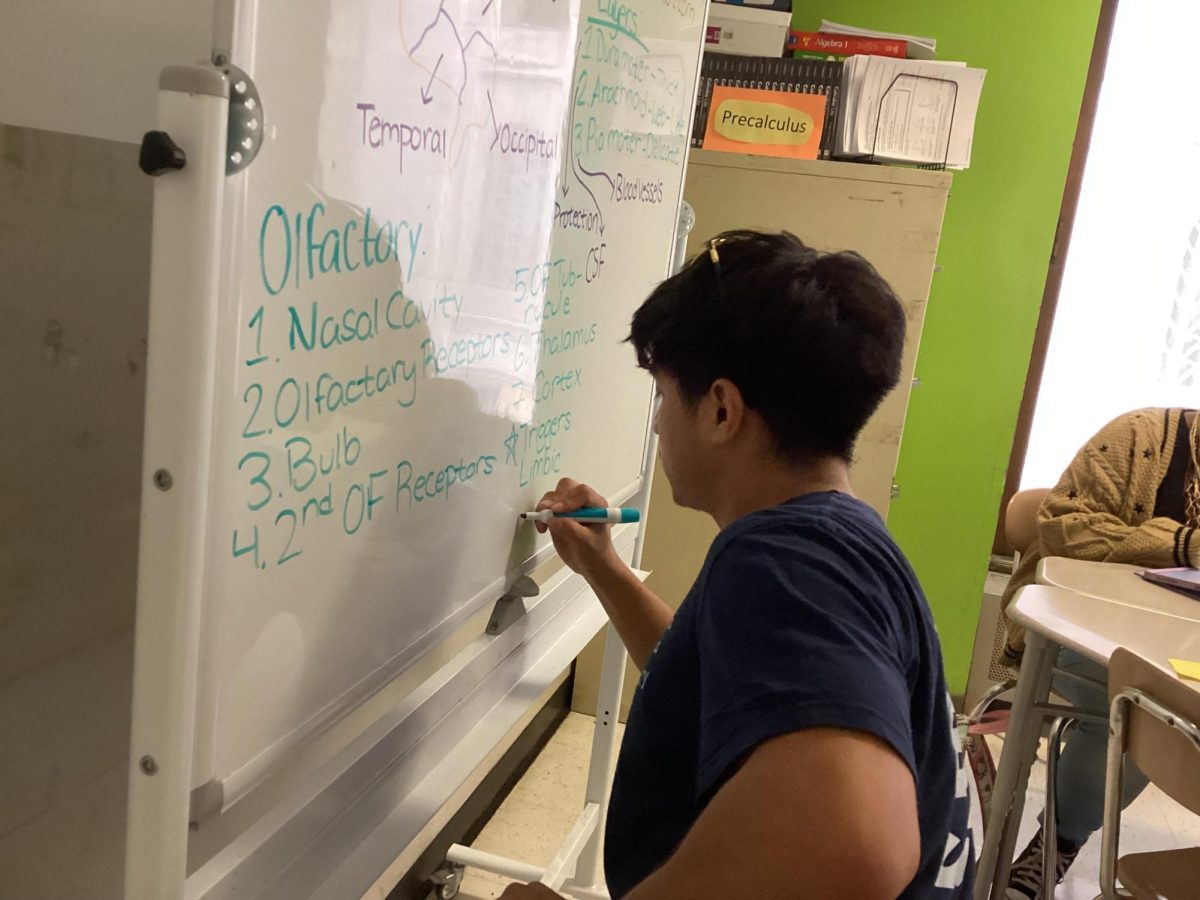 Temporal
Occipital
Layers
1. Duramater-Thick
2. Arachnoid-Web
3. Piamater-Delicate
Blood vessels
Protection
CSF
Olfactory.
1. Nasal Cavity
2. Olfactary Receptors
3. Bulb
4. 2nd OF Receptors
5. OF Tub-
rucule
6. Thalamus
7. Cortex
* Triggers
Limbic
Algebra 1
Precalculus